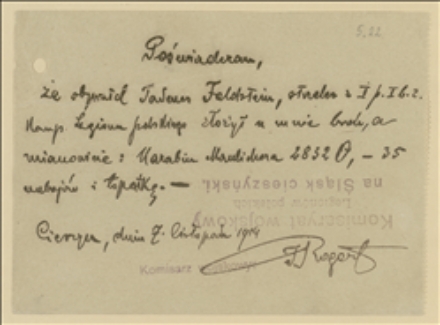 5.22
Poświadczam,
że obywatel Tadeusz Feldstein, strzelec z I p. I b. 2.
Komp. Legionu polskiego złożył u mnie broń, a
mianowicie: Karabin Manlichera 2832 O, – 35
nabojów i łopatkę. —
na Śląsk cieszyński.
Legionów polskich
Komisaryat wojskowy
Cieszyn, dnia 7. listopada 1914
Komisarz wojskowy